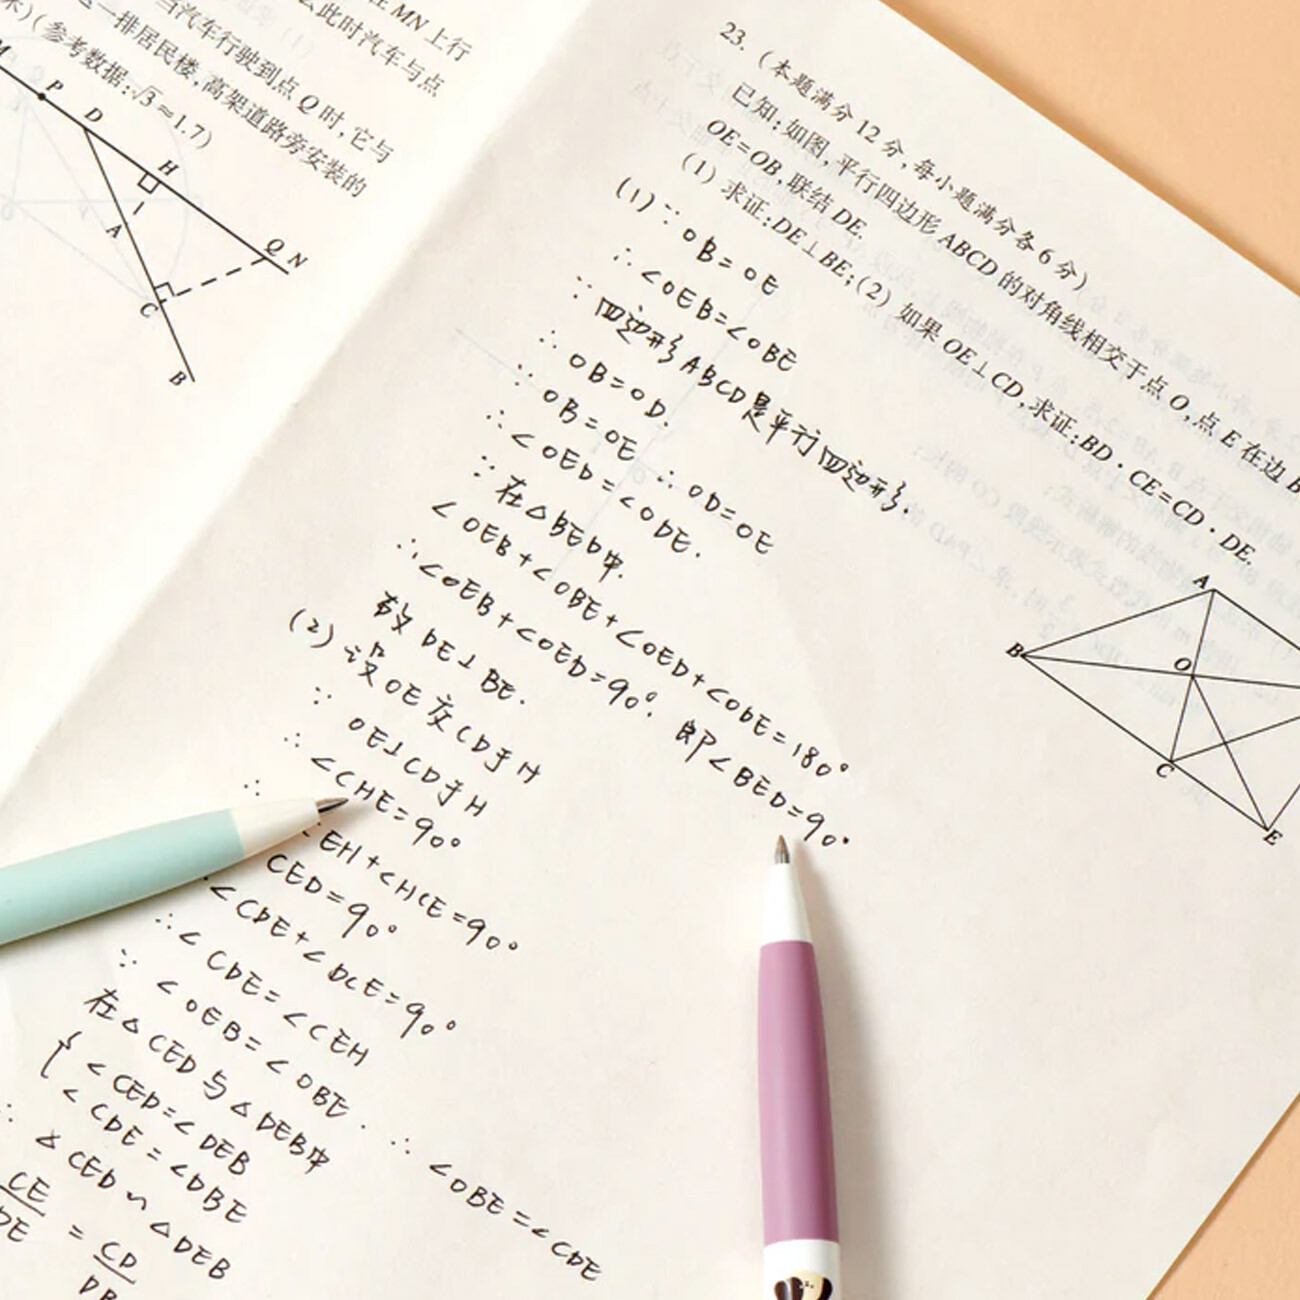 在 MN 上行
么此时汽车与点
当汽车行驶到点 Q 时,它与
一排居民楼,高架道路旁安装的
米)(参考数据:√3≈1.7)
M
P
D
H
1
A
Q
N
C
B
23.(本题满分 12 分,每小题满分各 6 分)
已知:如图,平行四边形 ABCD 的对角线相交于点 O,点 E 在边 B
OE=OB,联结 DE.
(1) 求证:DE⊥BE;(2) 如果 OE⊥CD,求证:BD·CE=CD·DE.
(1) ∵ OB=OE
∴ ∠OEB=∠OBE
∵ 四边形ABCD是平行四边形.
∴ OB=OD.
∵ OB=OE ∴ OD=OE
∴ ∠OED=∠ODE.
∵ 在△BED中.
∠OEB+∠OBE+∠OED+∠ODE=180°
∴ ∠OEB+∠OED=90°. 即∠BED=90°
故 DE⊥BE.
(2) 设 OE交CD于H
∵ OE⊥CD于H
∴ ∠CHE=90°
∴ EH+∠HCE=90°
CED=90°
∠CDE+∠DCE=90°
∴ ∠CDE=∠CEH
∵ ∠OEB=∠OBE. ∴ ∠DBE=∠CDE
在△CED与△DEB中
{ ∠CED=∠DEB
∠CDE=∠DBE
∴ △CED∽△DEB
CE/DE = CD/DB
A
B
O
C
E